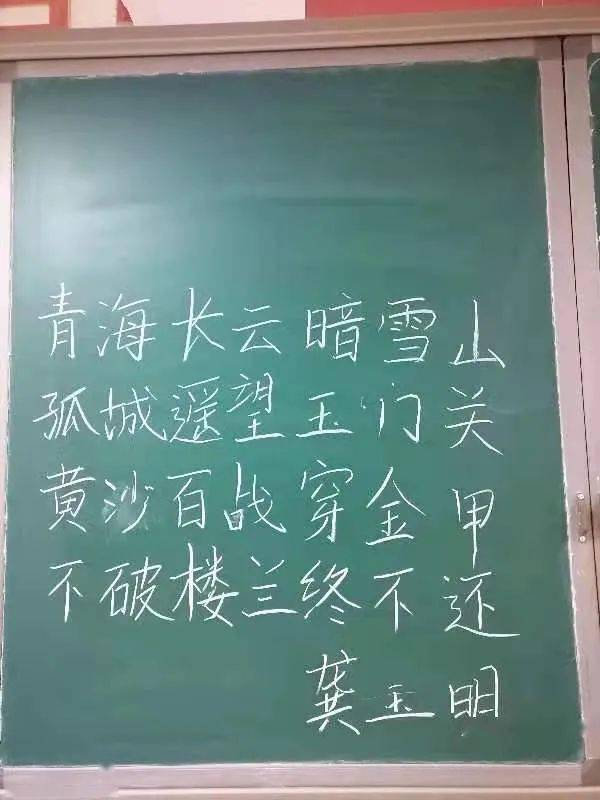 青海长云暗雪山
孤城遥望玉门关
黄沙百战穿金甲
不破楼兰终不还
龚玉明